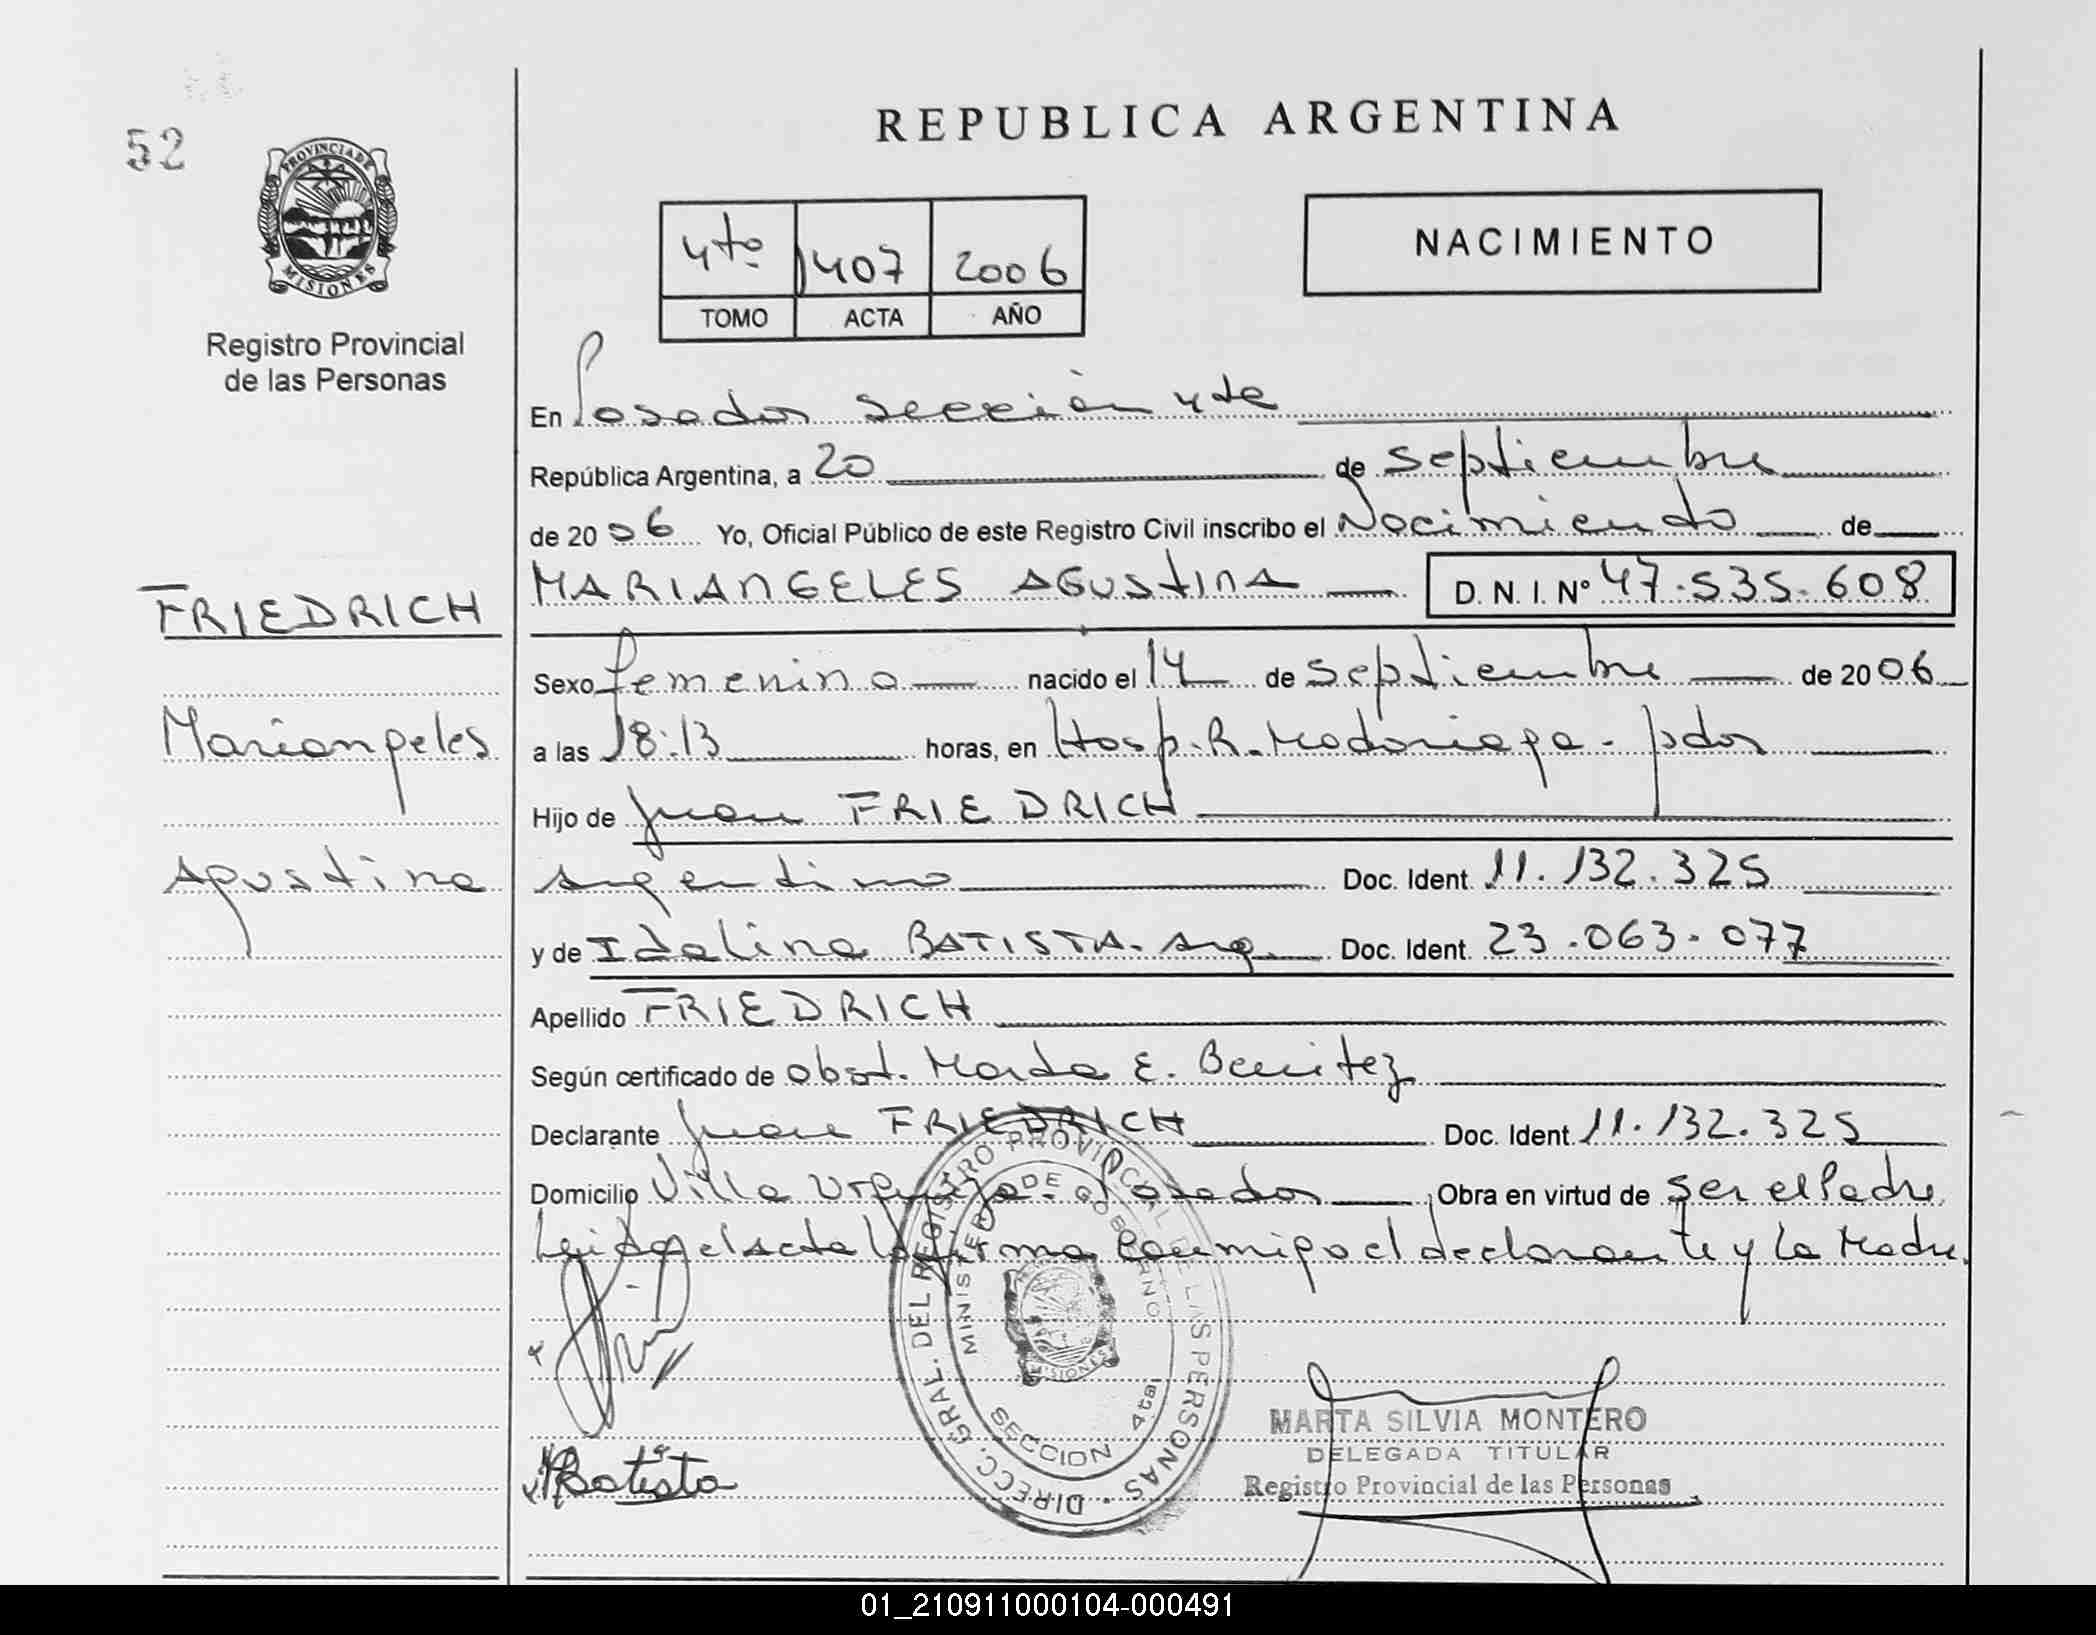 52
PROVINCIA DE
MISIONES
Registro Provincial
de las Personas
REPUBLICA ARGENTINA
4to 1407 2006
TOMO ACTA AÑO
NACIMIENTO
En Posadas sección 4ta
República Argentina, a 20 de septiembre
de 2006 Yo, Oficial Público de este Registro Civil inscribo el Nacimiento de
FRIEDRICH
MARIANGELES AGUSTINA D. N. I. Nº 47.535.608
Sexo femenino nacido el 14 de septiembre de 2006
Mariangeles
a las 18:13 horas, en Hosp. R. Madariaga - pdas
Hijo de Juan FRIEDRICH
Agustina
argentino Doc. Ident. 11.132.325
y de Idalina BATISTA - Arg. Doc. Ident. 23.063.077
Apellido FRIEDRICH
Según certificado de obst. Marta E. Benitez
Declarante Juan FRIEDRICH Doc. Ident. 11.132.325
Domicilio Villa Urquiza - Posadas Obra en virtud de ser el Padre
Leida el acta la firma conmigo el declarante y la Madre.
DIRECC. GRAL. DEL REGISTRO PROVINCIAL DE LAS PERSONAS
MINISTERIO DE GOBIERNO
MISIONES
SECCION 4ta
Batista
MARTA SILVIA MONTERO
DELEGADA TITULAR
Registro Provincial de las Personas
01_210911000104-000491